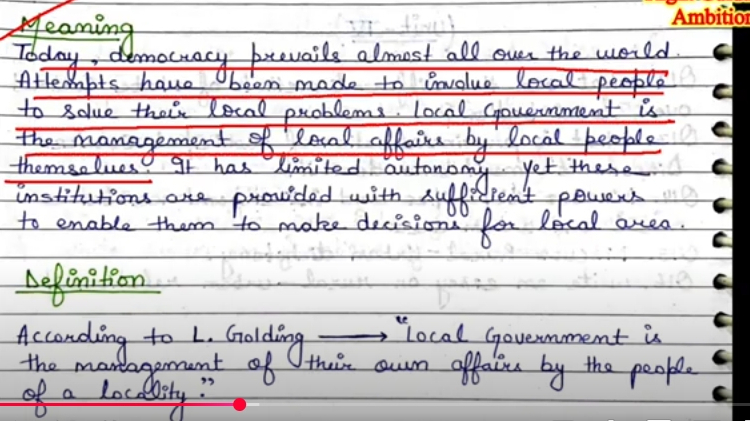 Ambition
Meaning
Today, democracy prevails almost all over the world.
Attempts have been made to involve local people
to solve their local problems. Local Government is
the management of local affairs by local people
themselves. It has limited autonomy yet these
institutions are provided with sufficient powers
to enable them to make decisions for local area.
Definition
According to L. Golding → "Local Government is
the management of their own affairs by the people
of a locality."